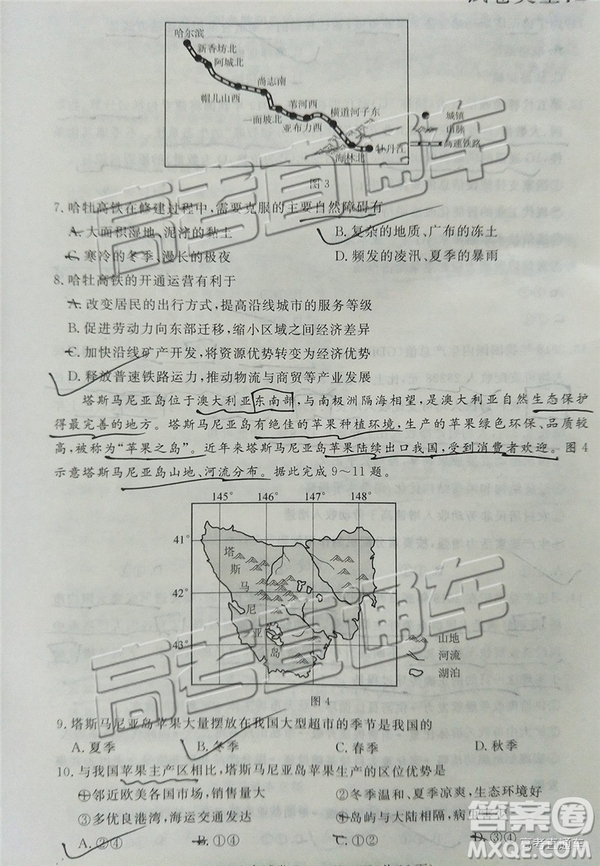 哈尔滨
新香坊北
阿城北
尚志南
帽儿山西
一面坡北
苇河西
亚布力西
横道河子东
海林北
牡丹江
城镇
山脉
高速铁路
图 3
7. 哈牡高铁在修建过程中,需要克服的主要自然障碍有
A. 大面积湿地、泥泞的黏土 B. 复杂的地质、广布的冻土
C. 寒冷的冬季、漫长的极夜 D. 频发的凌汛、夏季的暴雨
8. 哈牡高铁的开通运营有利于
A. 改变居民的出行方式,提高沿线城市的服务等级
B. 促进劳动力向东部迁移,缩小区域之间经济差异
C. 加快沿线矿产开发,将资源优势转变为经济优势
D. 释放普速铁路运力,推动物流与商贸等产业发展
塔斯马尼亚岛位于澳大利亚东南部,与南极洲隔海相望,是澳大利亚自然生态保护
得最完善的地方。塔斯马尼亚岛有绝佳的苹果种植环境,生产的苹果绿色环保、品质较
高,被称为“苹果之岛”。近年来塔斯马尼亚岛苹果陆续出口我国,受到消费者欢迎。图 4
示意塔斯马尼亚岛山地、河流分布。据此完成 9～11 题。
145° 146° 147° 148°
41°
42°
43°
塔
斯
马
尼
亚
岛
山地
河流
湖泊
图 4
9. 塔斯马尼亚岛苹果大量摆放在我国大型超市的季节是我国的
A. 夏季 B. 冬季 C. 春季 D. 秋季
10. 与我国苹果主产区相比,塔斯马尼亚岛苹果生产的区位优势是
①邻近欧美各国市场,销售量大 ②冬季温和,夏季凉爽,生态环境好
③多优良港湾,海运交通发达 ④岛与大陆相隔,病
A. ②④ B. ①④ C. ①③ D. ③④
高考直通车
高考直通车
答案卷